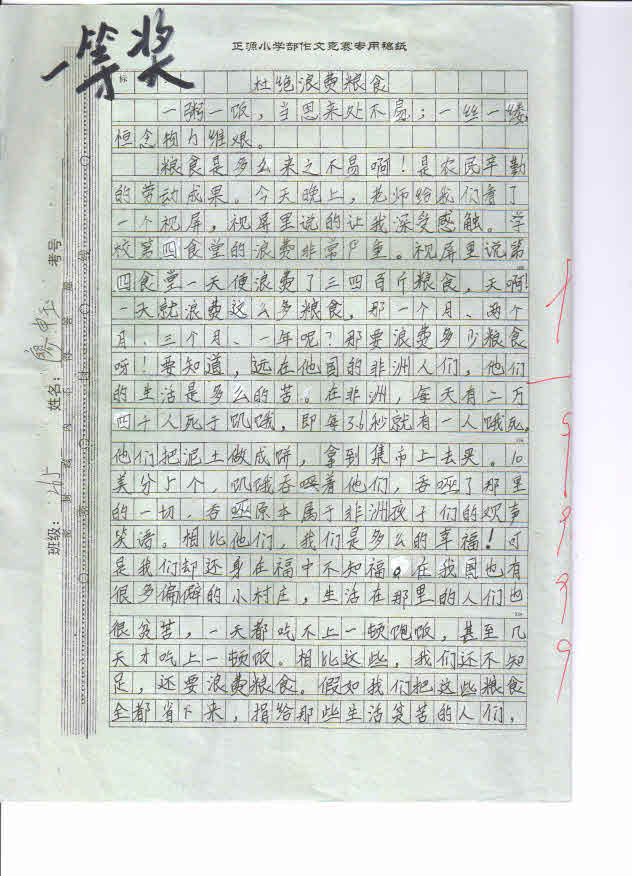 一等奖
正源小学部作文竞赛专用稿纸
标 杜绝浪费粮食
一粥一饭，当思来处不易；一丝一缕，
恒念物力维艰。
粮食是多么来之不易啊！是农民辛勤
的劳动成果。今天晚上，老师给我们看了
一个视屏，视屏里说的让我深受感触。学
校第四食堂的浪费非常严重。视屏里说第
四食堂一天便浪费了三四百斤粮食，天啊！
一天就浪费这么多粮食，那一个月、两个
月、三个月、一年呢？那要浪费多少粮食
呀！要知道，远在他国的非洲人们，他们
的生活是多么的苦。在非洲，每天有二万
四千人死于饥饿，即每3.6秒就有一人饿死。
他们把泥土做成饼，拿到集市上去卖。10
美分1个，饥饿吞噬着他们，吞噬了那里
的一切，吞噬原本属于非洲孩子们的欢声
笑语。相比他们，我们是多么的幸福！可
是我们却还身在福中不知福。在我国也有
很多偏僻的小村庄，生活在那里的人们也
很贫苦，一天都吃不上一顿饱饭，甚至几
天才吃上一顿饭。相比这些，我们还不知
足，还要浪费粮食。假如我们把这些粮食
全都省下来，捐给那些生活贫苦的人们，
考号
姓名：廖
班级：